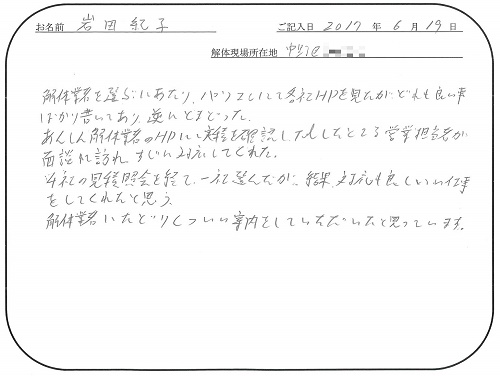 お名前 岩田紀子 ご記入日 2017 年 6 月 19 日
解体現場所在地 中野区
解体業者を選ぶにあたり、パソコンにて各社HPを見たが、どれも良い事
ばかり書いており、逆にとまどった。
あんしん解体業者のHPにて実績を確認しTelしたところ営業担当者が
面談に訪れ、すぐに対応してくれた。
4社の見積照会を経て、一社選んだが、結果、対応も良くいい仕事
をしてくれたと思う。
解体業者にたどりつくいい案内をしていただいたと思っています。